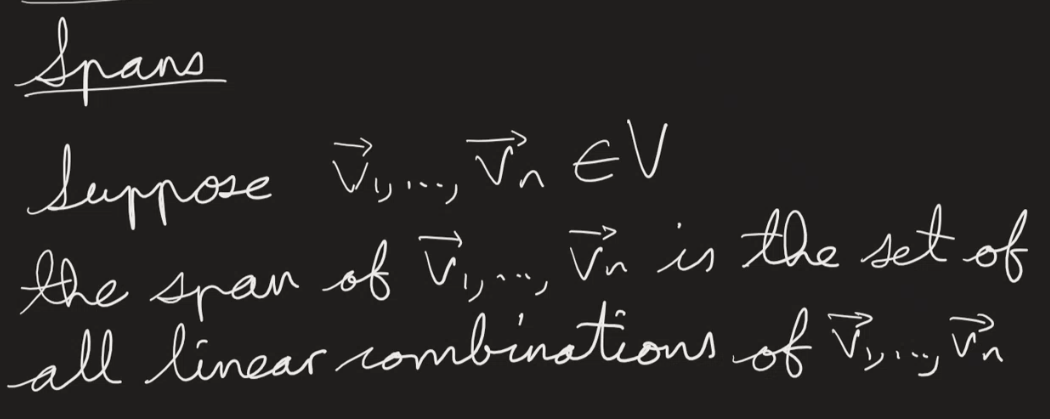 Spans
Suppose v⃗₁,..., v⃗ₙ ∈ V
the span of v⃗₁,..., v⃗ₙ is the set of
all linear combinations of v⃗₁,..., v⃗ₙ